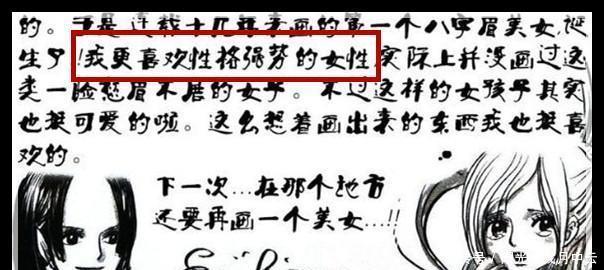 的。于是连载十几年来画的第一个八字眉美女，诞
生了！我更喜欢性格强势的女性，实际上并没画过这
类一脸愁眉不展的女子。不过这样的女孩子其实
也挺可爱的啦。这么想着画出来的东西我也挺喜
欢的。
下一次…在那个地方
还要再画一个美女…!!